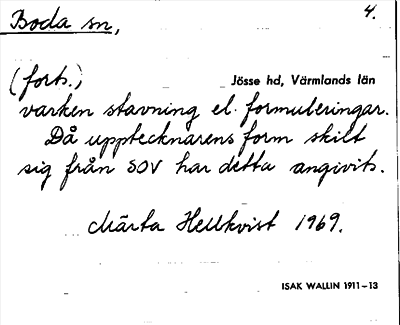 Boda sn,
4.
(forts.)
Jösse hd, Värmlands län
varken stavning el. formuleringar.
Då upptecknarens form skilt
sig från SOV har detta angivits.
Märta Hellkvist 1969.
ISAK WALLIN 1911–13